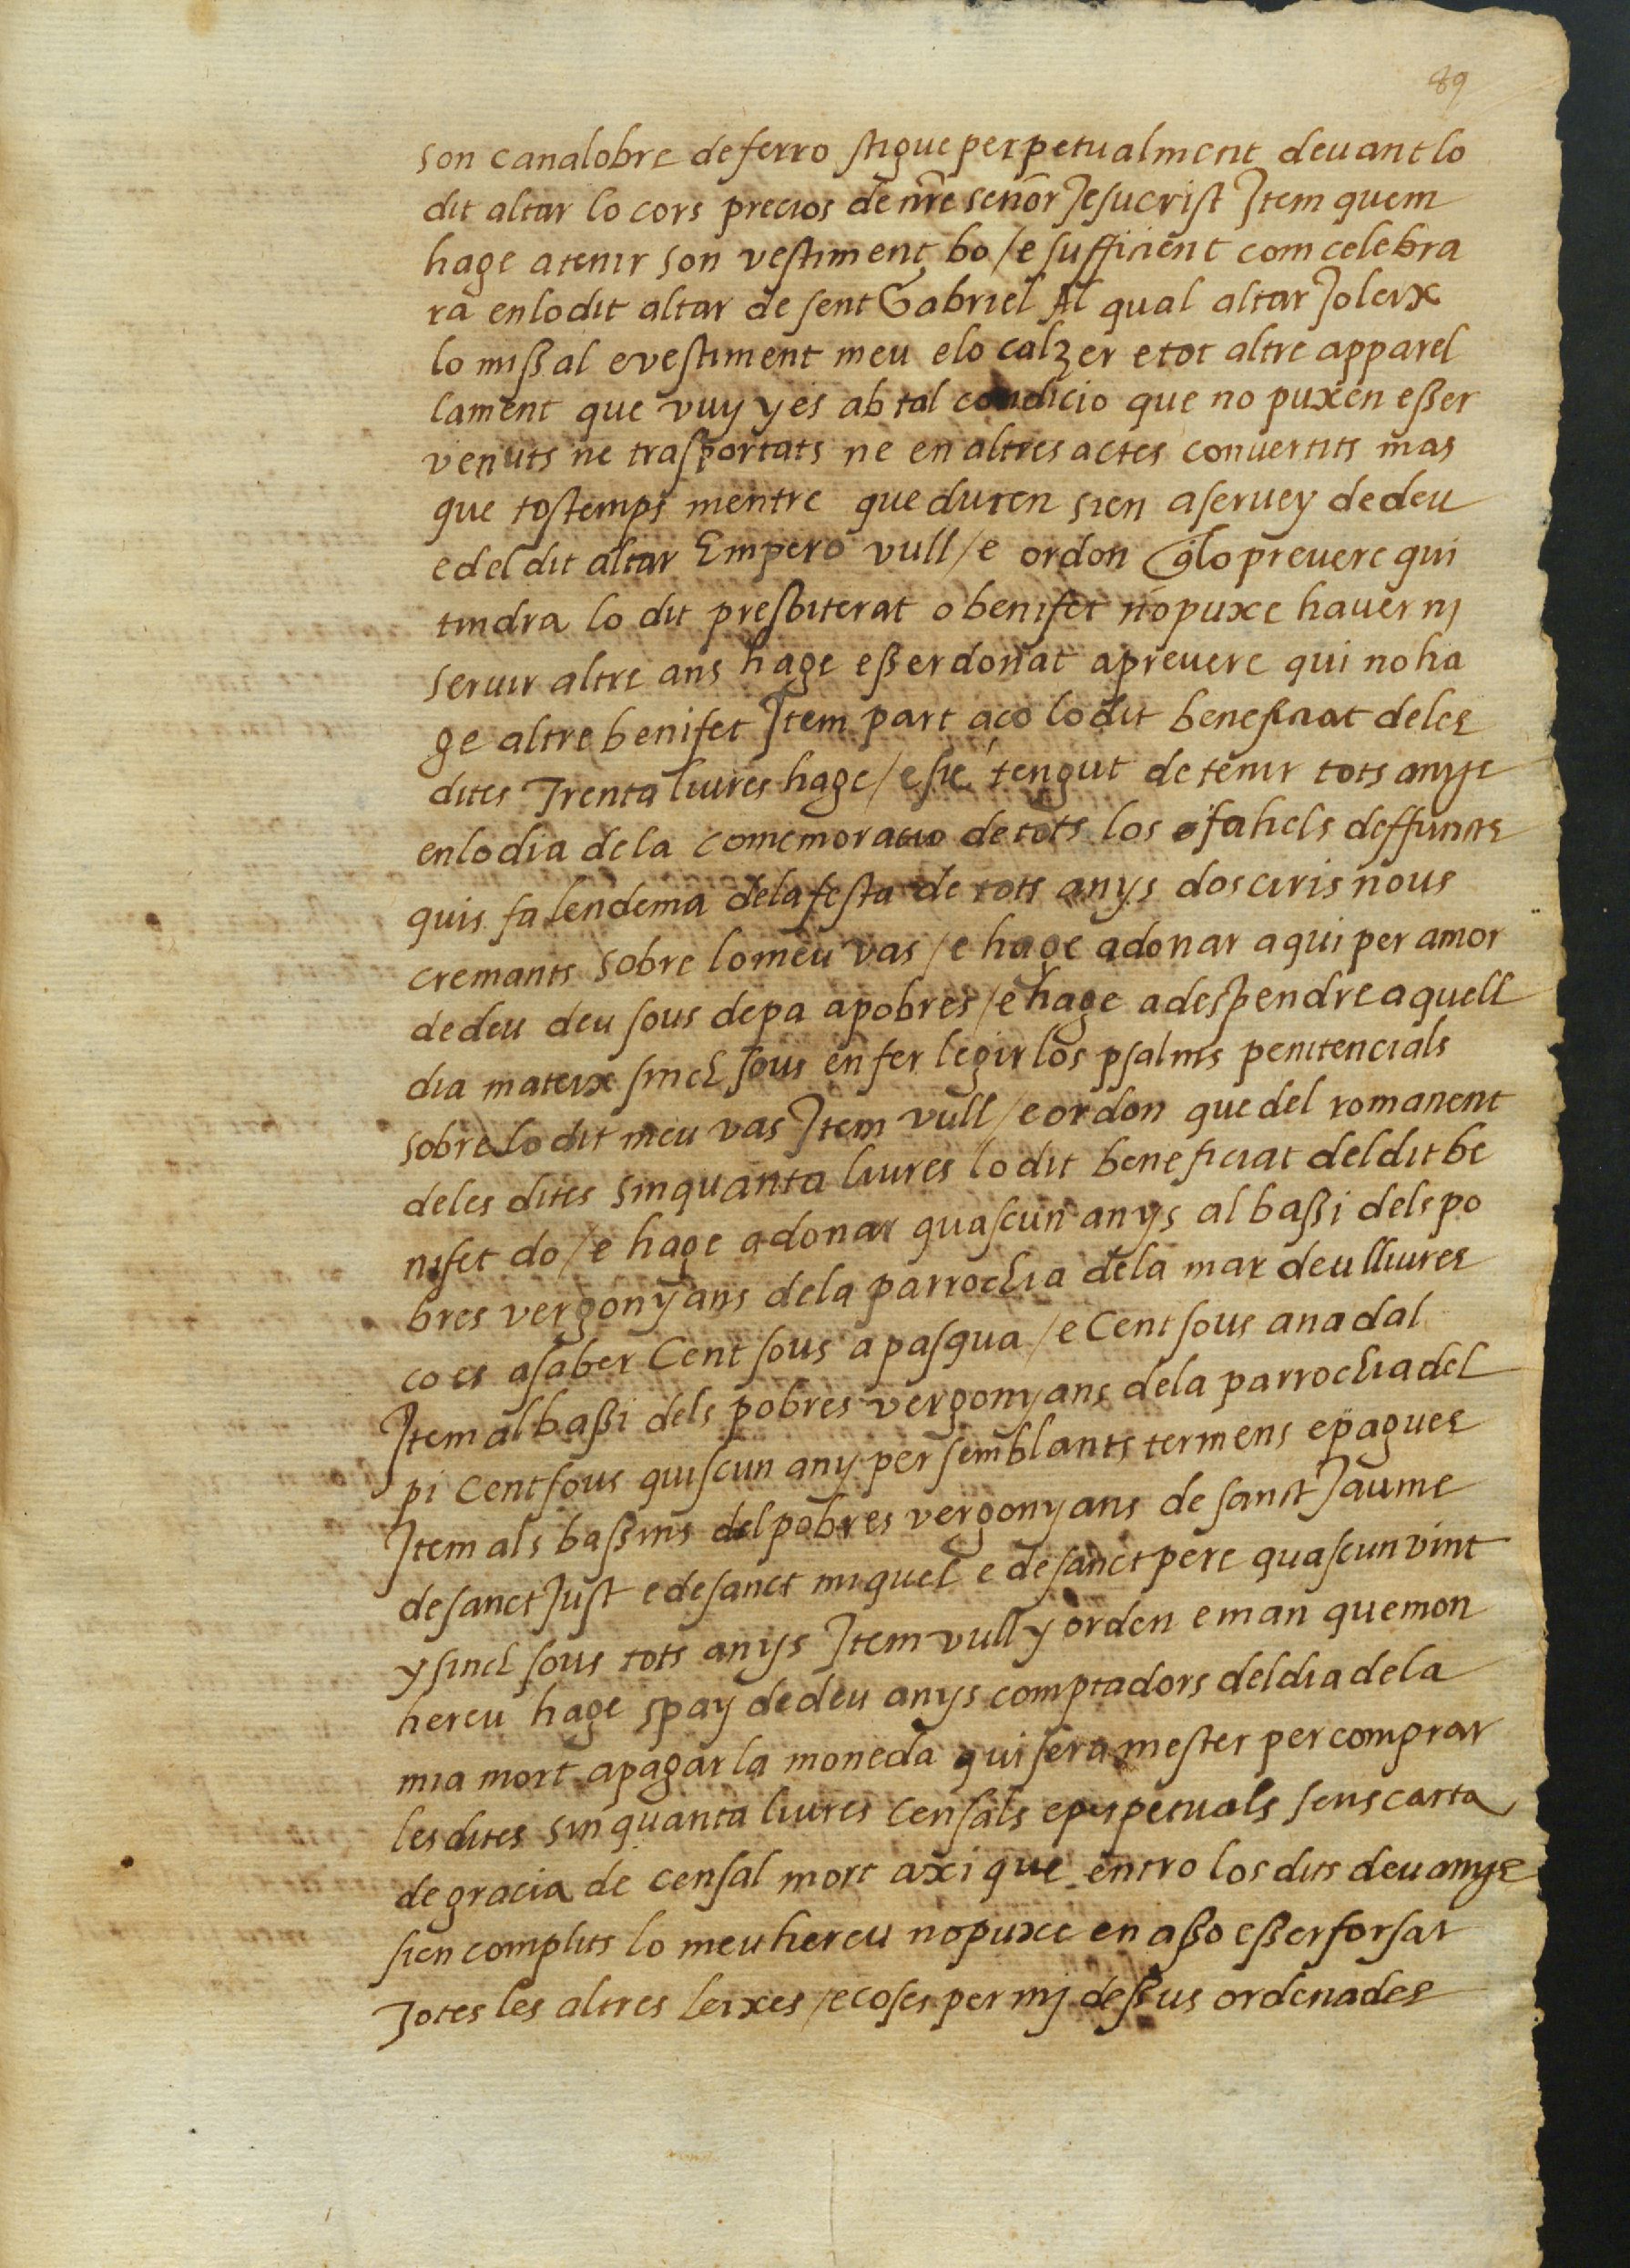 89
son canalobre de ferro stigue perpetualment deuant lo
dit altar lo cors precios de nr̃e señor Jesucrist Item quem
hage a tenir son vestiment bo / e sufficient com celebra
ra en lo dit altar de sent Gabriel Al qual altar Jo leix
lo missal e vestiment meu e lo calzer e tot altre apparel
lament que vuy y es ab tal condicio que no puxen esser
venuts ne trasportats ne en altres actes conuertits mas
que tostemps mentre que duren sien a seruey de deu
e del dit altar Empero vull / e ordon q̃ lo preuere qui
tindra lo dit presbiterat o benifet no puxe hauer nj
seruir altre ans hage esser donat a preuere qui no ha
ge altre benifet Item part aço lo dit beneficiat de les
dites Trenta liures hage / e sie tengut de tenir tots anys
en lo dia de la comemoratio de tots los fahels deffuncts
quis fa lendema de la festa de tots anys dos ciris nous
cremants sobre lo meu vas / e hage a donar aqui per amor
de deu deu sous de pa a pobres / e hage a despendre aquell
dia mateix sinch sous en fer legir los psalms penitencials
sobre lo dit meu vas Item vull / e ordon que del romanent
de les dites sinquanta liures lo dit beneficiat del dit be
nifet do / e hage a donar quascun anys al bassi dels po
bres vergonyans de la parrochia de la mar deu lliures
co es a saber Cent sous a pasqua / e Cent sous a nadal
Item al bassi dels pobres vergonyans de la parrochia del
pi Cent sous quiscun any per semblants termens e pagues
Item als bassins del pobres vergonyans de sanct Jaume
de sanct Just e de sanct miquel e de sanct pere quascun vint
y sinch sous tots anys Item vull y orden e man que mon
hereu hage spay de deu anys comptadors del dia de la
mia mort a pagar la moneda qui sera mester per comprar
les dites sinquanta liures Censals e perpetuals sens carta
de gracia de censal mort axi que entro los dits deu anys
sien complits lo meu hereu no puxe en asso esser forsat
Totes les altres leixes / e coses per mj dessus ordenades